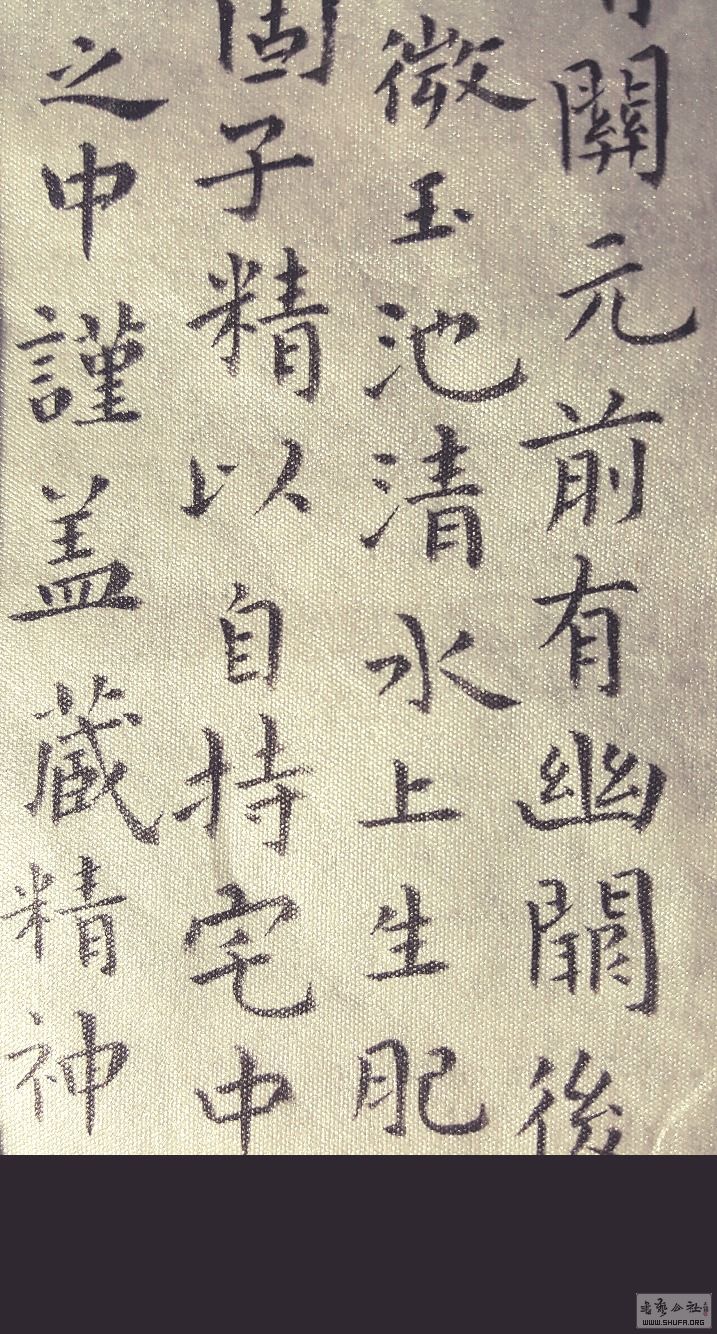 關元前有幽闕後
微玉池清水上生肥
固子精以自持宅中
之中謹盖藏精神
WWW.SHUFA.ORG